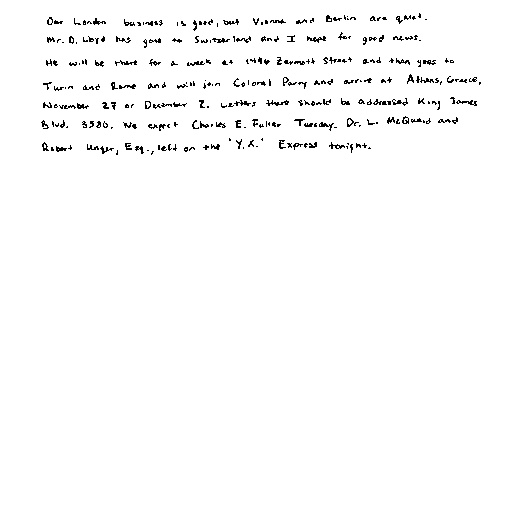 Our London business is good, but Vienna and Berlin are quiet.
Mr. D. Lloyd has gone to Switzerland and I hope for good news.
He will be there for a week at 1496 Zermott Street and then goes to
Turin and Rome and will join Colonel Parry and arrive at Athens, Greece,
November 27 or December 2. Letters there should be addressed King James
Blvd. 3580. We expect Charles E. Fuller Tuesday. Dr. L. McQuaid and
Robert Unger, Esq., left on the "Y.X." Express tonight.